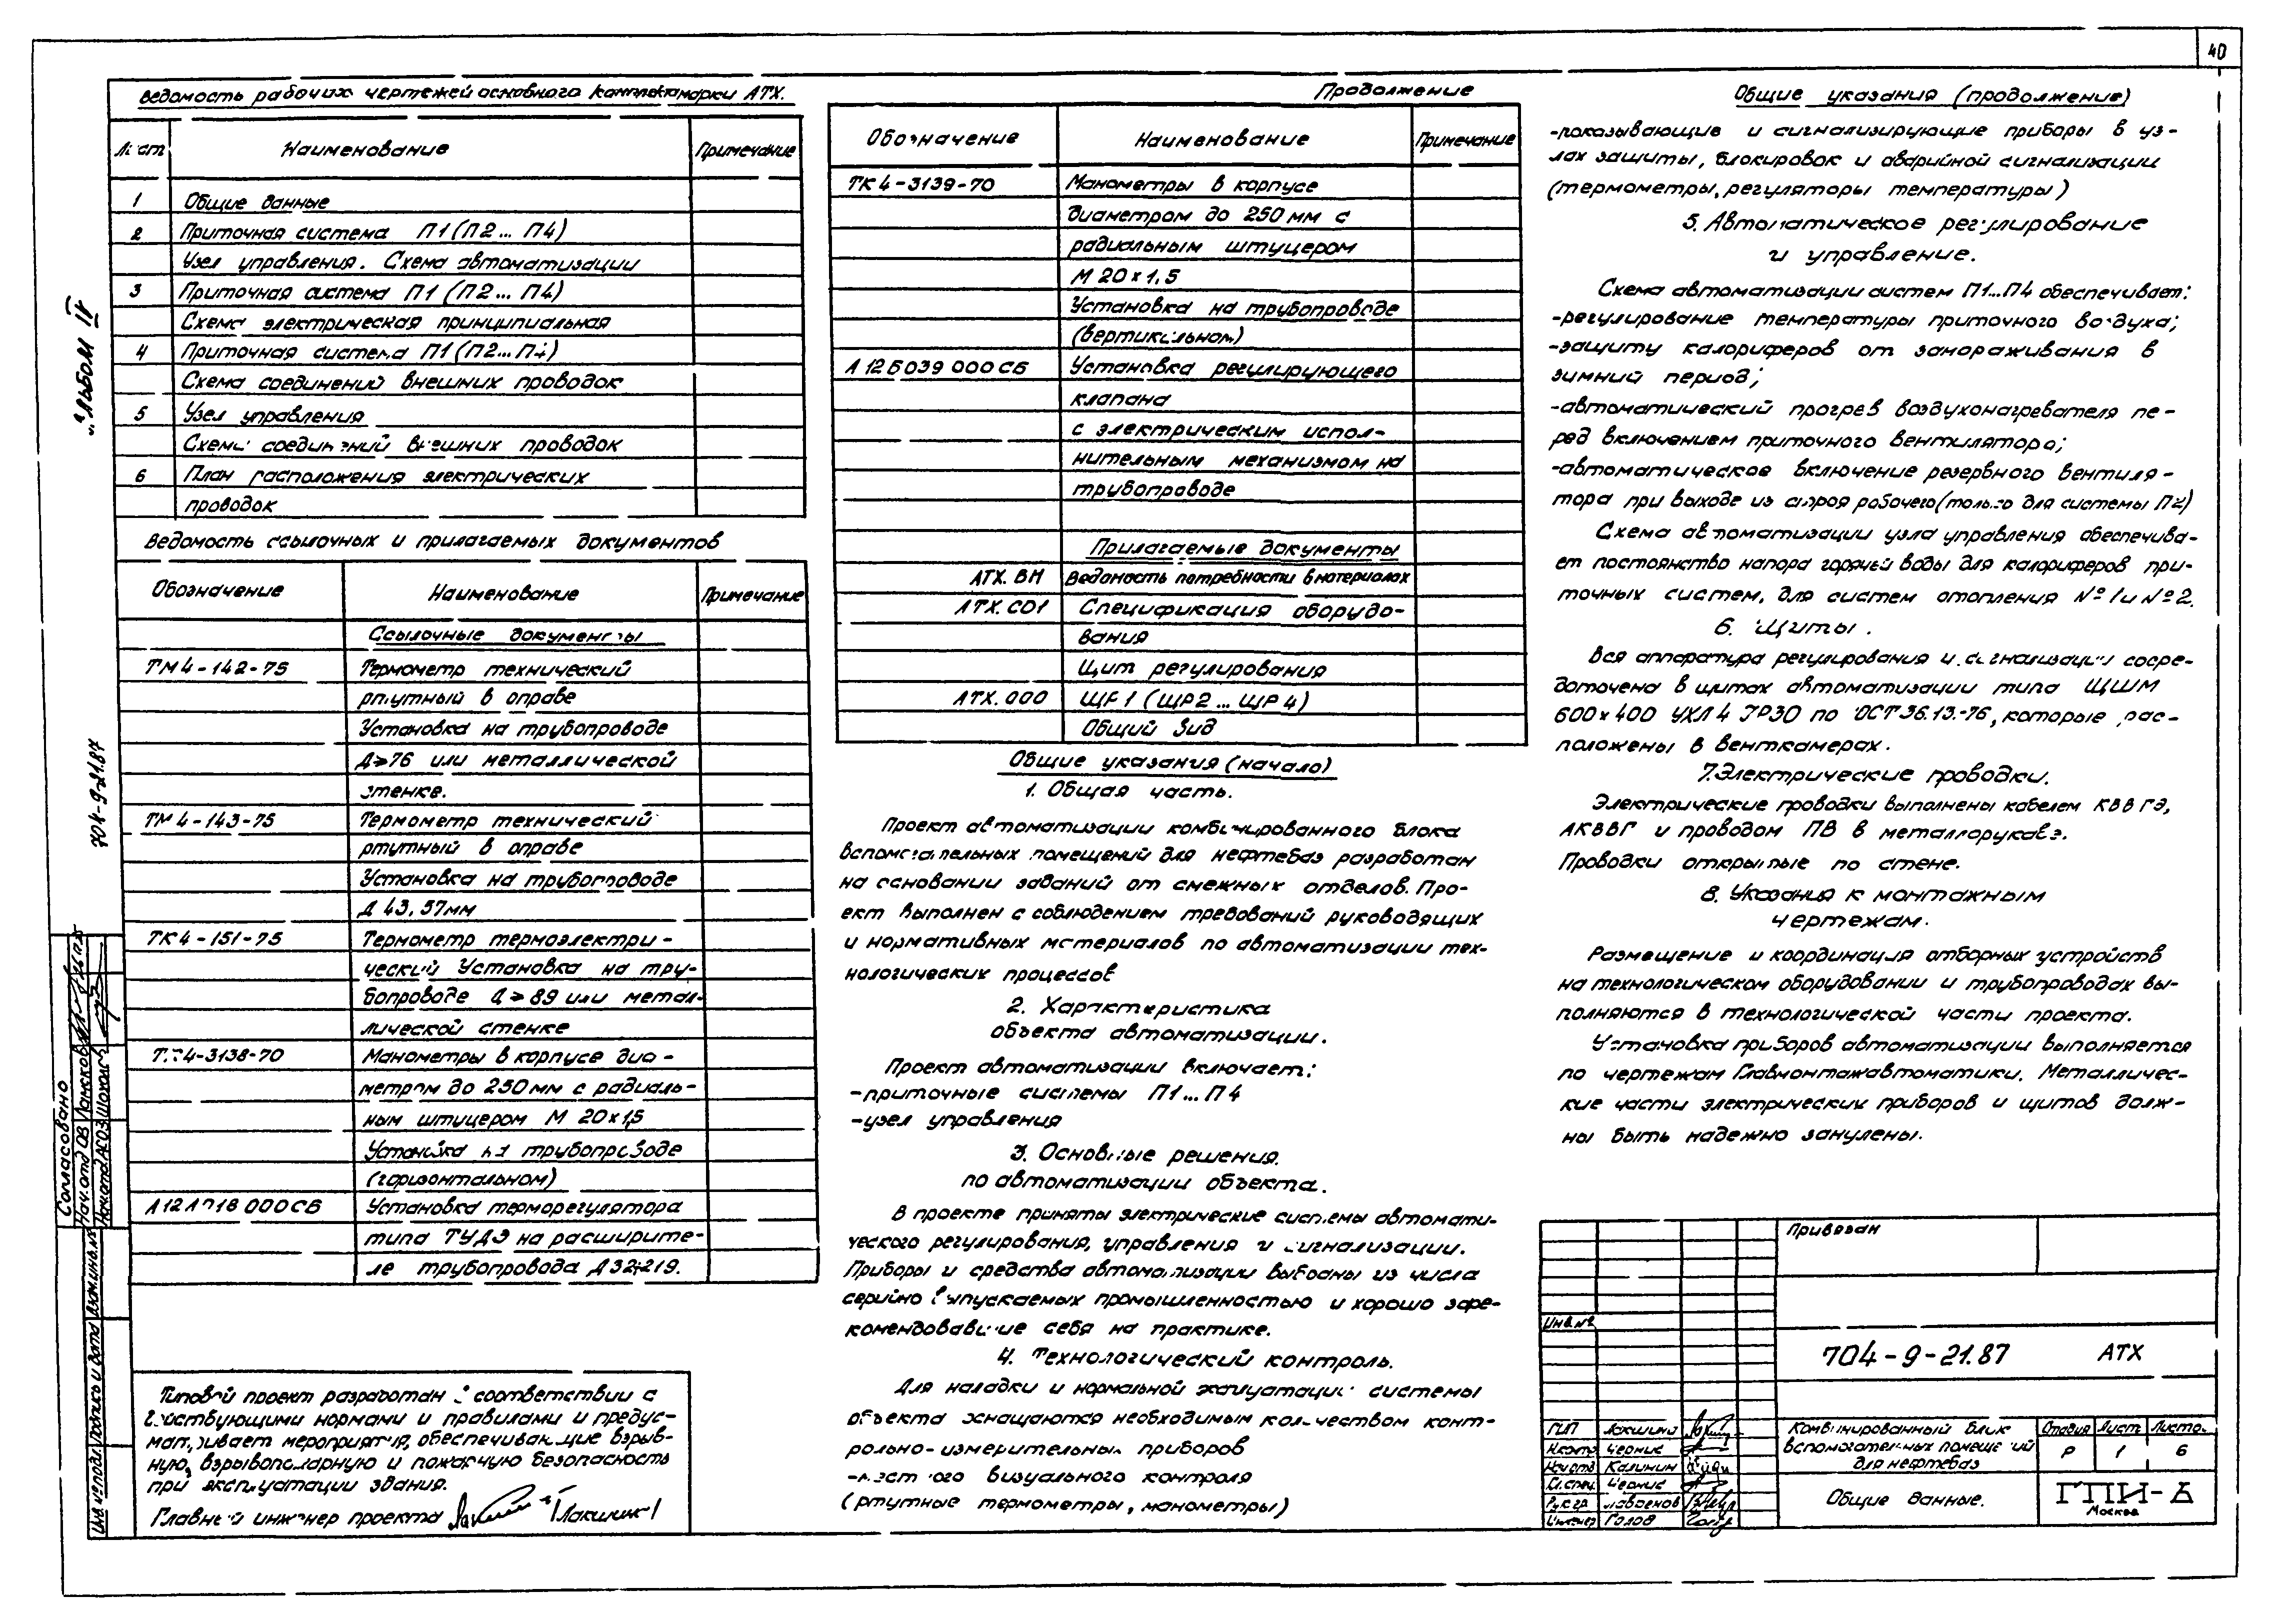 40
Ведомость рабочих чертежей основного комплекта марки АТХ.
Лист Наименование Примечание
1 Общие данные
2 Приточная система П1 (П2... П4)
Узел управления. Схема автоматизации
3 Приточная система П1 (П2... П4)
Схема электрическая принципиальная
4 Приточная система П1 (П2... П4)
Схема соединений внешних проводок
5 Узел управления
Схема соединений внешних проводок
6 План расположения электрических
проводок
Ведомость ссылочных и прилагаемых документов
Обозначение Наименование Примечание
Ссылочные документы
ТМ4-142-75 Термометр технический
ртутный в оправе
Установка на трубопроводе
Д≥76 или металлической
стенке.
ТМ4-143-75 Термометр технический
ртутный в оправе
Установка на трубопроводе
Д 43, 57мм
ТК4-151-75 Термометр термоэлектри-
ческий Установка на тру-
бопроводе Д≥89 или метал-
лической стенке
4-3138-70 Манометры в корпусе диа-
метром до 250мм с радиаль-
ным штуцером М 20х1,5
Установка на трубопроводе
(горизонтальном)
000СБ Установка терморегулятора
типа ТУДЭ на расширите-
ле трубопровода Д 32÷219.
Типовой проект разработан в соответствии с
действующими нормами и правилами и предус-
матривает мероприятия, обеспечивающие взрыв-
ную, взрывопожарную и пожарную безопасность
при эксплуатации здания.
Главный инженер проекта
Продолжение
Обозначение Наименование Примечание
ТК4-3139-70 Манометры в корпусе
диаметром до 250мм с
радиальным штуцером
М 20х1,5
Установка на трубопроводе
(вертикальном)
А12Б039 000СБ Установка регулирующего
клапана
с электрическим испол-
нительным механизмом на
трубопроводе
Прилагаемые документы
АТХ. ВМ Ведомость потребности в материалах
АТХ. СО1 Спецификация оборудо-
вания
Щит регулирования
АТХ. 000 ЩР1 (ЩР2 ... ЩР4)
Общий вид
Общие указания (начало)
1. Общая часть.
Проект автоматизации комбинированного блока
вспомогательных помещений для нефтебаз разработан
на основании заданий от смежных отделов. Про-
ект выполнен с соблюдением требований руководящих
и нормативных материалов по автоматизации тех-
нологических процессов
2. Характеристика
объекта автоматизации.
Проект автоматизации включает:
-приточные системы П1...П4
-узел управления
3. Основные решения.
по автоматизации объекта.
В проекте приняты электрические системы автомати-
ческого регулирования, управления и сигнализации.
Приборы и средства автоматизации выбраны из числа
серийно выпускаемых промышленностью и хорошо заре-
комендовавшие себя на практике.
4. Технологический контроль.
Для наладки и нормальной эксплуатации системы
объекта оснащаются необходимым количеством конт-
рольно-измерительных приборов
-местного визуального контроля
(ртутные термометры, манометры)
Общие указания (продолжение)
-показывающие и сигнализирующие приборы в уз-
лах защиты, блокировок и аварийной сигнализации
(термометры, регуляторы температуры)
5. Автоматическое регулирование
и управление.
Схема автоматизации систем П1...П4 обеспечивает:
-регулирование температуры приточного воздуха;
-защиту калориферов от замораживания в
зимний период;
-автоматический прогрев воздухонагревателя пе-
ред включением приточного вентилятора;
-автоматическое включение резервного вентиля-
тора при выходе из строя рабочего (только для системы П2)
Схема автоматизации узла управления обеспечива-
ет постоянство напора горячей воды для калориферов при-
точных систем, для систем отопления №1 и №2.
6. Щиты.
Вся аппаратура регулирования и сигнализации сосре-
доточена в щитах автоматизации типа ЩШМ
600х400 УХЛ4 IР30 по ОСТ36.13.-76, которые рас-
положены в венткамерах.
7. Электрические проводки.
Электрические проводки выполнены кабелем КВВГЭ,
АКВВГ и проводом ПВ в металлорукаве.
Проводки открытые по стене.
8. Указания к монтажным
чертежам.
Размещение и координация отборных устройств
на технологическом оборудовании и трубопроводах вы-
полняются в технологической части проекта.
Установка приборов автоматизации выполняется
по чертежам Главмонтажавтоматики. Металличес-
кие части электрических приборов и щитов долж-
ны быть надежно занулены.
Привязан
Инв.№
704-9-21.87 АТХ
ГИП Лакшина
Н.контр Чернис
Нач.отд Калинин
Гл.спец. Чернис
Рук.гр.
Инженер Голов
Комбинированный блок
вспомогательных помещений
для нефтебаз
Стадия Лист Листов
Р 1 6
Общие данные.
ГПИ-
Москва
Альбом II
704-9-21.87
Согласовано
Нач. отд ОВ
Инв.№подл. Подпись и дата Взам.инв.№